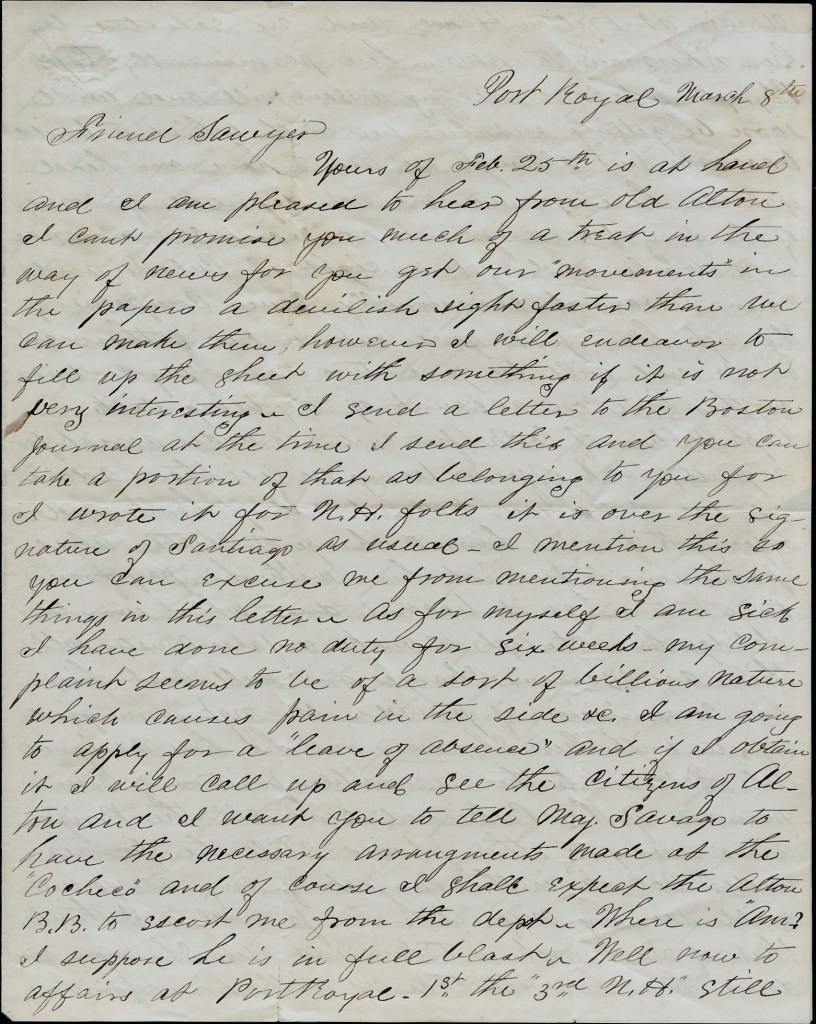 Port Royal March 8th
Friend Sawyer
Yours of Feb. 25th is at hand
and I am pleased to hear from old Alton
I cant promise you much of a treat in the
way of news for you get our "movements" in
the papers a devilish sight faster than we
can make them, however I will endeavor to
fill up the sheet with something if it is not
very interesting - I send a letter to the Boston
Journal at the time I send this and you can
take a portion of that as belonging to you for
I wrote it for N.H. folks it is over the sig-
nature of Santiago as usual - I mention this so
you can excuse me from mentioning the same
things in this letter - As for myself I am sick
I have done no duty for six weeks - my com-
plaint seems to be of a sort of billious nature
which causes pain in the side &c. I am going
to apply for a "leave of absence" and if I obtain
it I will call up and see the citizens of Al-
ton and I want you to tell Maj. Savage to
have the necessary arrangments made at the
"Cocheco" and of course I shall expect the Alton
B.B. to escort me from the depot - Where is "Am"?
I suppose he is in full blast - Well now to
affairs at Port Royal - 1st the "3rd N.H." still